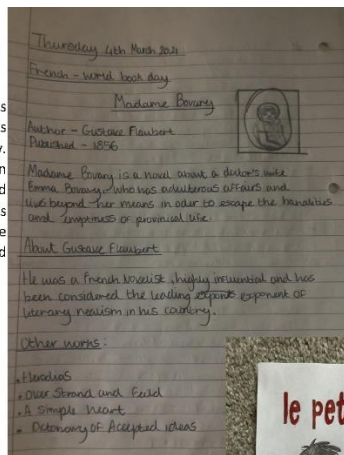 Thursday 4th March 2021
French - world book day
Madame Bovary
Author - Gustave Flaubert
Published - 1856
Madame Bovary is a novel about a doctor's wife
Emma Bovary, who has adulterous affairs and
lives beyond her means in oder to escape the banalities
and emptiness of provincial life.
About Gustave Flaubert
He was a French Novelist, highly influential and has
been considered the leading exponent of
literary realism in his country.
Other works:
• Herodias
• Over Strand and Feild
• A Simple heart
• Dictonary of Accepted ideas
le pet
s
s
y.
n
d
s
e
d